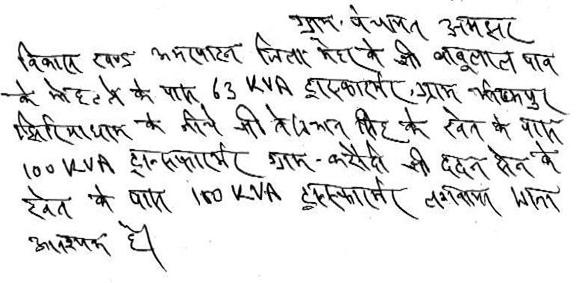 ग्राम-पंचायत अमझर
विकास खण्ड अमरपाटन जिला मैहर के श्री बाबूलाल पाव
के मोहल्ले के पास 63 KVA ट्रांसफार्मर, ग्राम
के नीचे श्री सिंह के खेत के पास
100 KVA ट्रान्सफार्मर ग्राम-करौंदी श्री ददन सेन के
खेत के पास 100 KVA ट्रांसफार्मर लगवाया जाना
आवश्यक है।